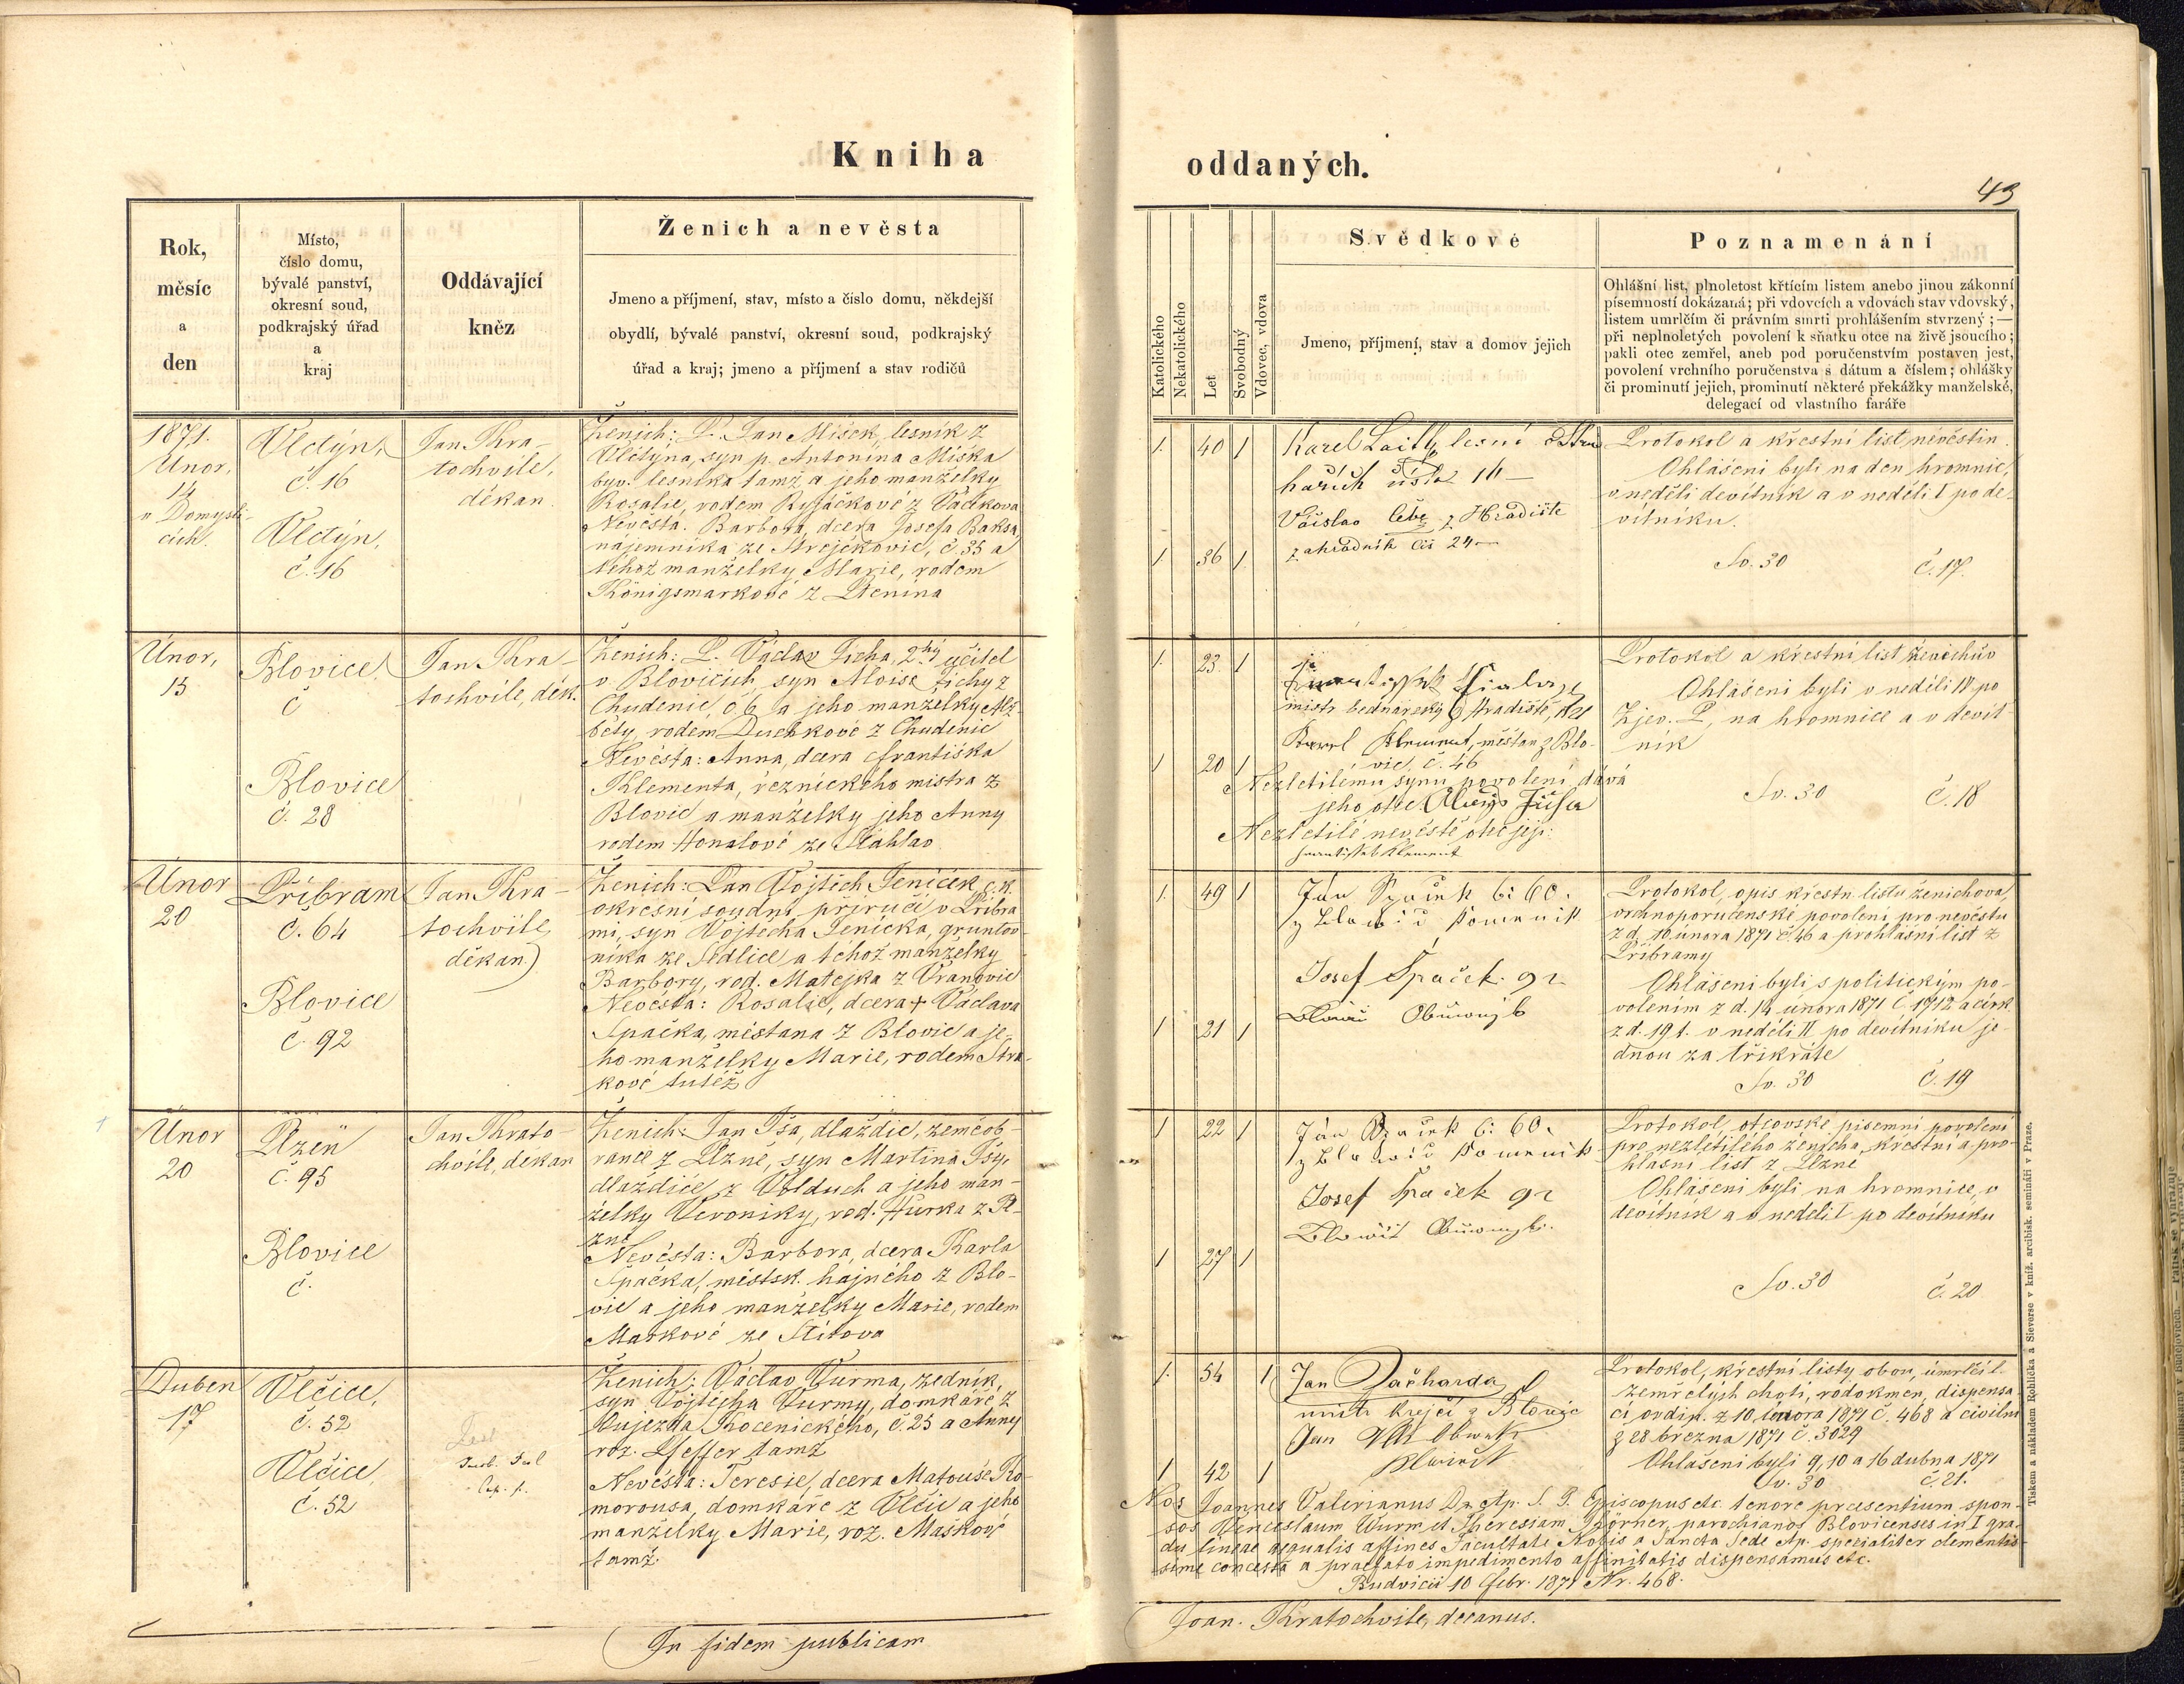 Kniha
Rok,
měsíc
a
den
Místo,
číslo domu,
bývalé panství,
okresní soud,
podkrajský úřad
a
kraj
Oddávající
kněz
Ženich a nevěsta
Jmeno a příjmení, stav, místo a číslo domu, někdejší
obydlí, bývalé panství, okresní soud, podkrajský
úřad a kraj; jmeno a příjmení a stav rodičů
1871.
Únor,
14
v Domysli-
cích.
Vlčtýn,
č. 16
Vlčtýn,
č. 16
Jan Kra-
tochvile,
děkan
Ženich: P. Jan Míšek, lesník z
Vlčtýna, syn p. Antonína Míška
býv. lesníka tamž a jeho manželky
Rosalie, rodem Ryjáčkové z Vačíkova
Nevěsta: Barbora, dcera Josefa Baksa,
nájemníka ze Strejčkovic, č. 35 a
téhož manželky Marie, rodem
Königsmarkové z Ptenína
Únor,
13
Blovice
č
Blovice
č. 28
Jan Kra-
tochvile, děk.
Ženich: P. Václav Jícha, 2hý učitel
v Blovicích, syn Aloise Jíchy z
Chudenic, č. 6 a jeho manželky Alž-
běty, rodem Duchkové z Chudenic
Nevěsta: Anna, dcera Františka
Klementa, řeznického mistra z
Blovic a manželky jeho Anny
rodem Honalové ze Šťáhlav
Únor
20
Příbram
č. 64
Blovice
č. 92
Jan Kra-
tochvile,
děkan
Ženich: Pan Vojtěch Jeníček, c. k.
okresní soudní příručí v Příbra
mi, syn Vojtěcha Jeníčka, gruntov
níka ze Sedlice a téhož manželky
Barbory, rod. Matejka z Vranovic
Nevěsta: Rosalie, dcera + Václava
Špačka, měšťana z Blovic a je-
ho manželky Marie, rodem Stra-
kové tutéž
Únor
20
Plzeň
č. 95
Blovice
č.
Jan Krato-
chvile, děkan
Ženich: Jan Jša, dlaždič, zeměob-
rance z Plzně, syn Martina Jšy,
dlaždiče z Volduch a jeho man-
želky Veroniky, rod. Hurka z Pl-
zně
Nevěsta: Barbora, dcera Karla
Špačka, městsk. hajného z Blo-
vic a jeho manželky Marie, rodem
Maškové ze Štítova
Duben
17
Vlčice,
č. 52
Vlčice,
č. 52
Ženich: Václav Vurma, zedník,
syn Vojtěcha Vurmy, domkáře z
Oujezda Chocenického, č. 25 a Anny
roz. Pfeffer tamž
Nevěsta: Teresie, dcera Matouše Ko-
morousa, domkáře z Vlčic a jeho
manželky Marie, roz. Maškové
tamž.
In fidem publicam
oddaných.
43
Katolického
Nekatolického
Let
Svobodný
Vdovec, vdova
Svědkové
Jmeno, příjmení, stav a domov jejich
Poznamenání
Ohlášní list, plnoletost křtícím listem anebo jinou zákonní
písemností dokázaná; při vdovcích a vdovách stav vdovský,
listem umrlčím či právním smrti prohlášením stvrzený; —
při neplnoletých povolení k sňatku otce na živě jsoucího;
pakli otec zemřel, aneb pod poručenstvím postaven jest,
povolení vrchního poručenstva s dátum a číslem; ohlášky
či prominutí jejich, prominutí některé překážky manželské,
delegací od vlastního faráře
1. 40 1
1. 36 1.
Karel
lesní
16
Václav z Hradiště
zahradník čís 24
Protokol a křestní list nevěstin.
Ohlášeni byli na den hromnic,
v neděli devítník a v neděli I po de-
vítníku.
Sv. 30 č. 17.
1. 23. 1
1 20 1
mistr bednářský z Hradiště,
Karel Klement, měšťan z Blo-
vic, č. 46
Nezletilému synu povolení dává
jeho otec Aloys Jícha
Nezletilé nevěstě otec její:
František Klement
Protokol a křestní list ženichův
Ohlášeni byli v neděli IV po
Zjev. P., na hromnice a v devít-
ník
Sv. 30 č. 18
1. 49 1
1 21 1
Ján Špaček č: 60.
z Blowic kominik
Josef Špaček 92
Protokol, opis křestn. listu ženichova,
vrchnoporučenské povolení pro nevěstu
z d. 10. února 1871 č. 46 a prohlášní list z
Příbramy
Ohlášeni byli s politickým po-
volením z d. 14 února 1871 č. 1912 a círk.
z d. 19 t. v neděli II po devítníku je-
dnou za třikráte
Sv. 30 č. 19
1 22 1
1 27 1
Ján Špaček č: 60.
z Blowic kominik
Josef Špaček 92
Protokol, otcovské písemní povolení
pro nezletilého ženicha, křestní a pro-
hlášní list z Plzně
Ohlášeni byli na hromnice, v
devítník a v neděli I po devítníku
Sv. 30 č. 20
1. 54 1
1 42 1
Jan Pačharda
mistr krejčí z Blovic
Jan
Protokol, křestní listy obou, úmrlčí l.
zemřelých chotí, rodokmen, dispensa-
cí ordin. z 10. února 1871 č. 468 a civilní
z 28 března 1871 č. 3029
Ohlášeni byli 9, 10 a 16 dubna 1871
Sv. 30 č. 21.
Nos Joannes Valerianus D. et Ap. S. G. Episcopus etc. tenore praesentium spon-
sos Wenceslaum Wurm et Theresiam parochianos Blovicenses in I gra-
du lineae aequalis affines Facultate Nobis a Sancta Sede Ap. specialiter clementis-
sime concessa a praefato impedimento affinitatis dispensamus etc.
Budvicii 10 febr. 1871 Nr. 468.
Joan. Kratochvile, decanus.
Tiskem a nákladem Rohlíčka a Sieverse v kníž. arcibisk. semináři v Praze.